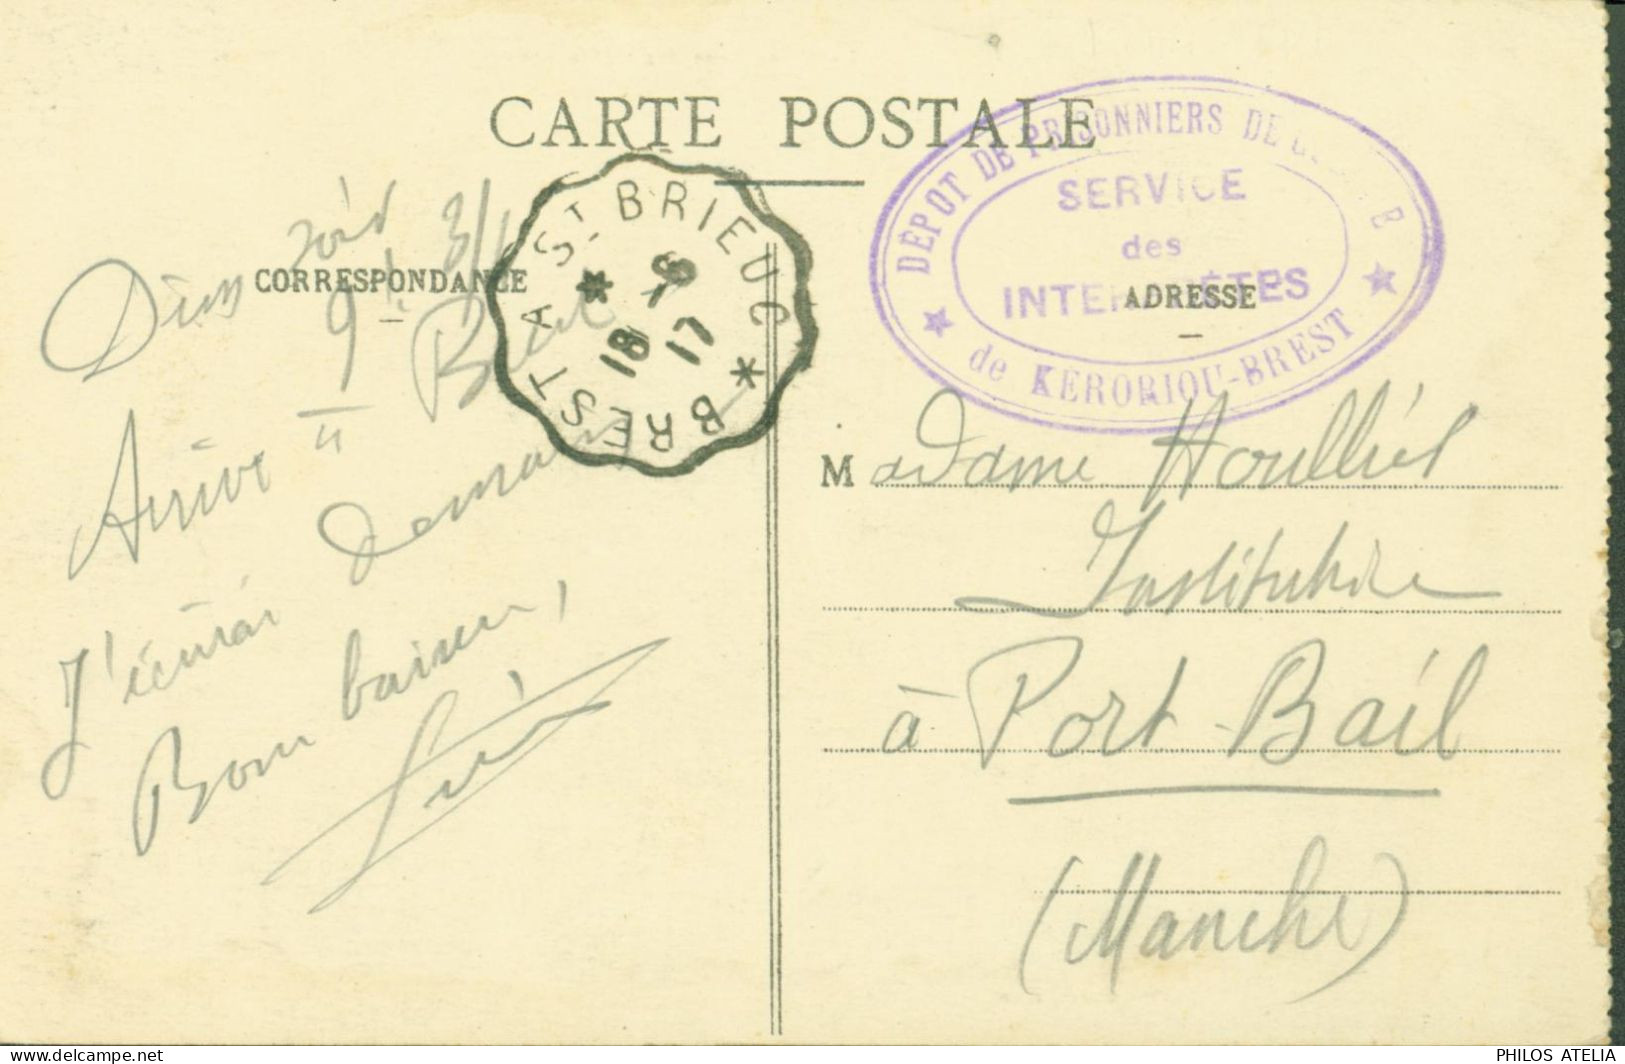 CARTE POSTALE
DÉPOT DE PRISONNIERS DE
SERVICE
des
INTERPRÈTES
de KERORIOU-BREST
BREST A ST BRIEUC
18 -6
17
CORRESPONDANCE
ADRESSE
soir
9h 3/4
Arrivé à Brest
J'écrirai demain
Bons baisers,
Madame Houlliet
Institutrice
à Port-Bail
(Manche)
PHILOS ATELIA